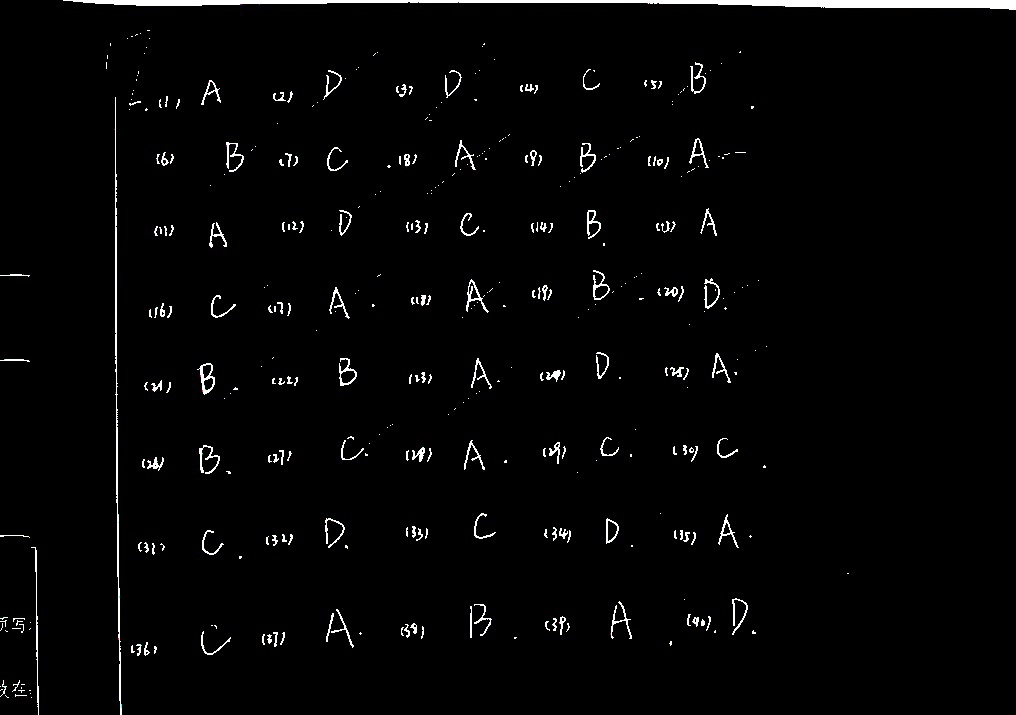 一.(1) A (2) D (3) D. (4) C (5) B.
(6) B (7) C. (8) A. (9) B (10) A
(11) A (12) D (13) C. (14) B. (15) A
(16) C (17) A. (18) A. (19) B. (20) D.
(21) B. (22) B (23) A. (24) D. (25) A.
(26) B. (27) C. (28) A. (29) C. (30) C.
(31) C. (32) D. (33) C (34) D. (35) A.
(36) C (37) A. (38) B. (39) A. (40). D.
页写:
放在: